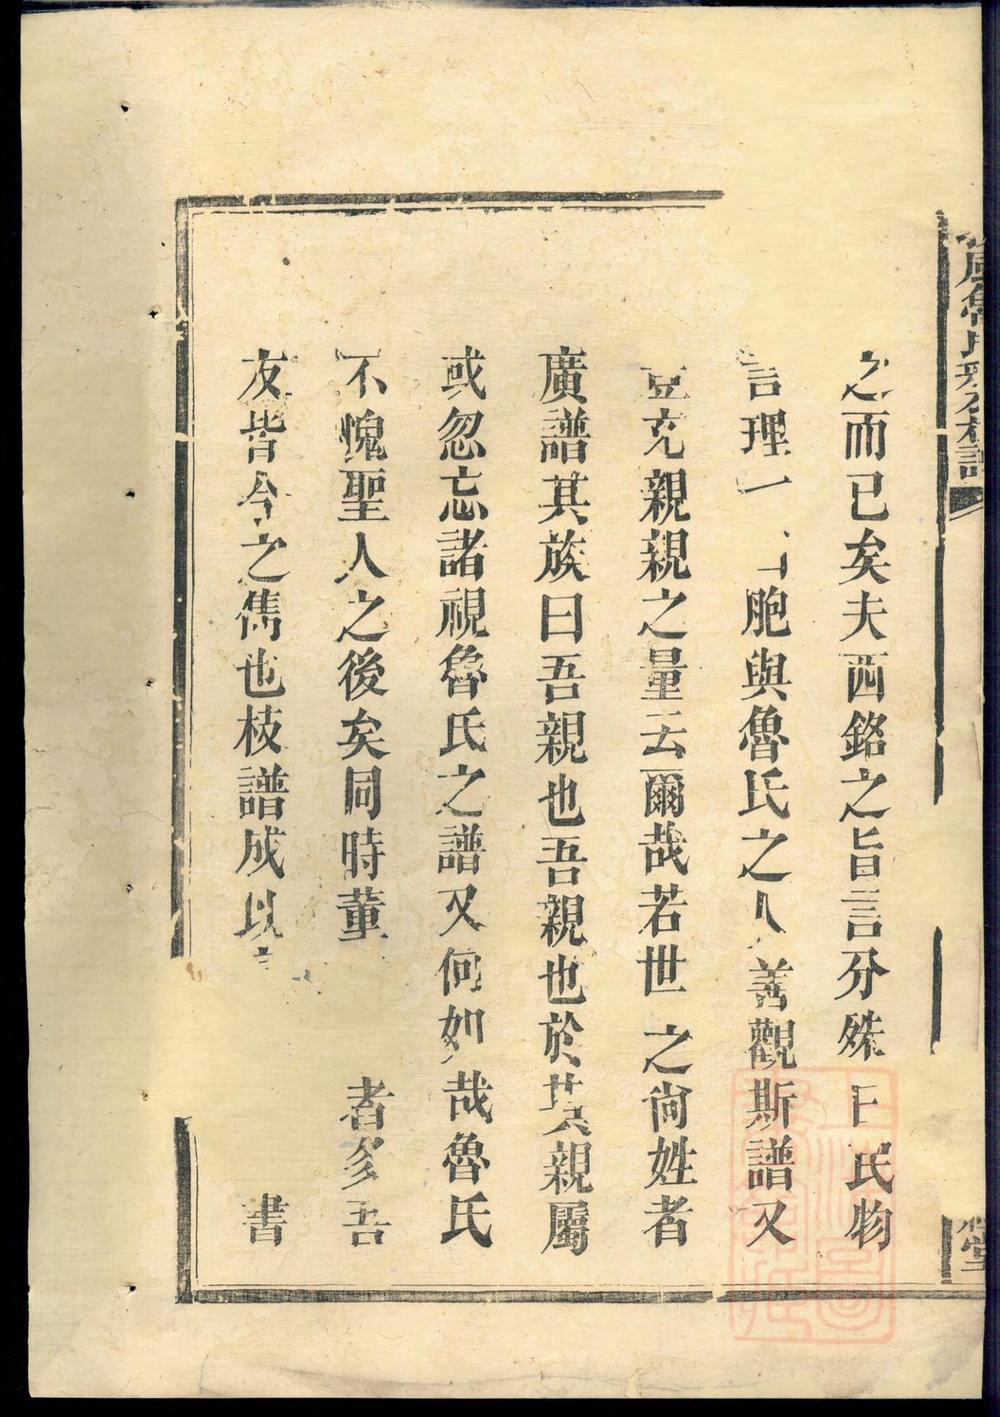 之而已矣夫西銘之旨言分殊曰民物
言理一曰胞與魯氏之人善觀斯譜又
豈充親親之量云爾哉若世之尚姓者
廣譜其族曰吾親也吾親也於其親屬
或忽忘諸視魯氏之譜又何如哉魯氏
不愧聖人之後矣同時董者多吾
友皆今之雋也枝譜成以書
魯氏
譜
堂